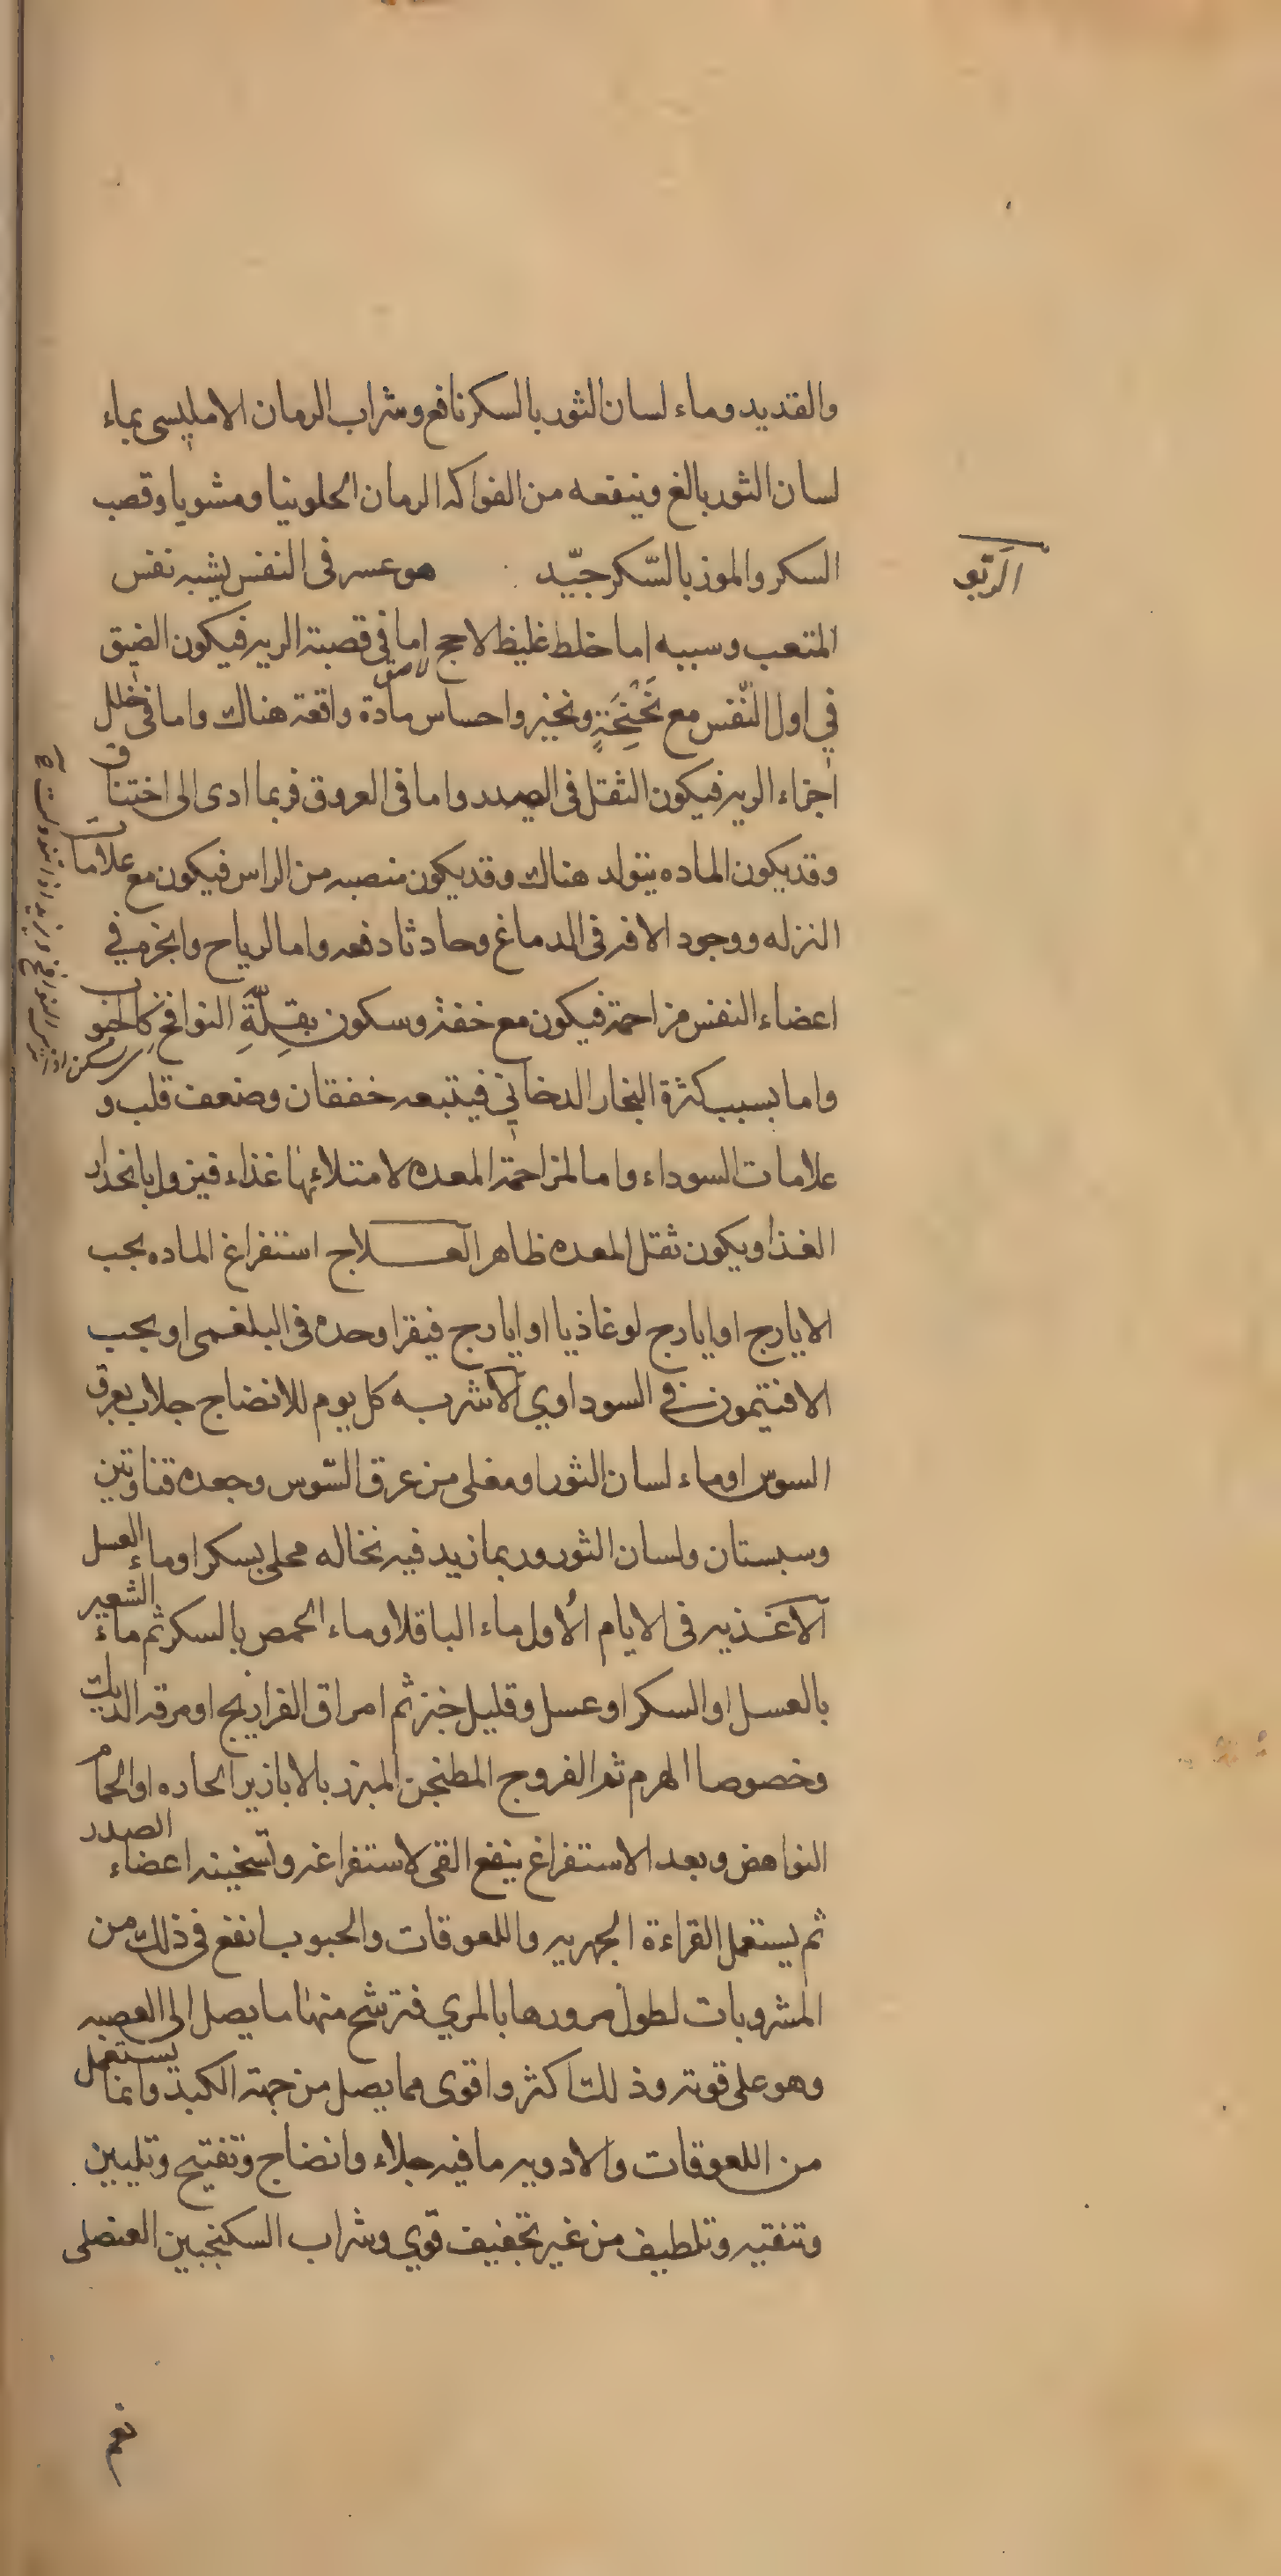 والقديد وماء لسان الثور بالسكر نافع وشراب الرمان الامليسى بماء
لسان الثور بالغ وينفعه من الفواكه الرمان الحلو نيا ومشويا وقصب
الربو
السكر والموز بالسّكر جيّد هو عسر فى النفس يشبه نفس
المتعب وسببه اما خلط غليظ لاحج اما فى قصبة الريه فيكون الضيق
لاصق
في اول النّفس مع نَحْنِحَةٍ ونخير واحساس مادة واقعة هناك واما فى خلل
اجزاء الريه فيكون الثقل فى الصدر واما فى العروق فربما ادى الى اختناق
وقد يكون الماده يتولد هناك وقد يكون منصبه من الراس فيكون مع علامات
النزله ووجود الافه فى الدماغ وحادثا دفعه واما لرياح وابخره في
اعضاء النفس مزاحمة فيكون مع خفة وسكون بقِلَّةِ النوافخ كالحبوب
واما بسبب كثرة البخار الدخاني فيتبعه خفقان وضعف قلب و
علامات السوداء واما لمزاحمة المعده لامتلائها غذاء فيزول بانحدار
الغذا ويكون ثقل المعده ظاهر العلاج استفراغ الماده بحب
الايارج او ايارج لوغاذيا او ايارج فيقرا وحده فى البلغمى او بحب
الافتيمون في السوداوي الاشربه كل يوم للانضاج جلاب بعرق
السوس او ماء لسان الثور او مغلى من عرق السّوس وجعده قناوتين
وسبستان ولسان الثور وربما زيد فيه نخاله محلى بسكر او ماء العسل
الاغذيه فى الايام الأول ماء الباقلا وماء الحمص بالسكر ثم ماء الشعير
بالعسل او السكر او عسل وقليل خبز ثم امراق الفراريج او مرقه الديك
وخصوصا الهرم ثم الفروج المطنجن المبزر بالابازير الحاده او الحمام
النواهض وبعد الاستفراغ ينفع القى لاستفراغه وتسخينه اعضاء الصدر
ثم يستعمل القراءة الجهريه واللعوقات والحبوب انفع فى ذلك من
المشروبات لطول مرورها بالمري فترشح منها ما يصل الى القصبه
وهو على قوته وذلك اكثر واقوى مما يصل من جهة الكبد وانما يستعمل
من اللعوقات والادويه ما فيه جلاء وانضاج وتفتيح وتليين
وتنقيه وتلطيف من غير تجفيف قوي وشراب السكنجبين العنصلى
نعم